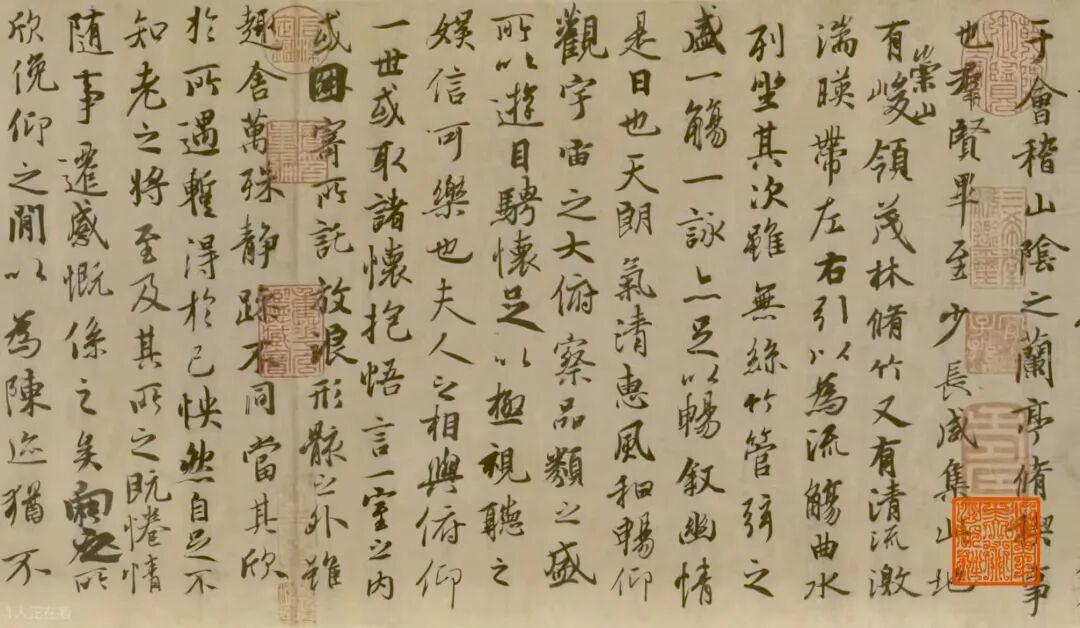 于會稽山陰之蘭亭脩禊事
也羣賢畢至少長咸集此地
有崇山峻領茂林脩竹又有清流激
湍暎帶左右引以為流觴曲水
列坐其次雖無絲竹管弦之
盛一觴一詠亦足以暢叙幽情
是日也天朗氣清惠風和暢仰
觀宇宙之大俯察品類之盛
所以遊目騁懷足以極視聽之
娛信可樂也夫人之相與俯仰
一世或取諸懷抱悟言一室之內
或因寄所託放浪形骸之外雖
趣舍萬殊靜躁不同當其欣
於所遇暫得於己怏然自足不
知老之將至及其所之既惓情
隨事遷感慨係之矣向之所
欣俛仰之閒以為陳迹猶不
1人正在看